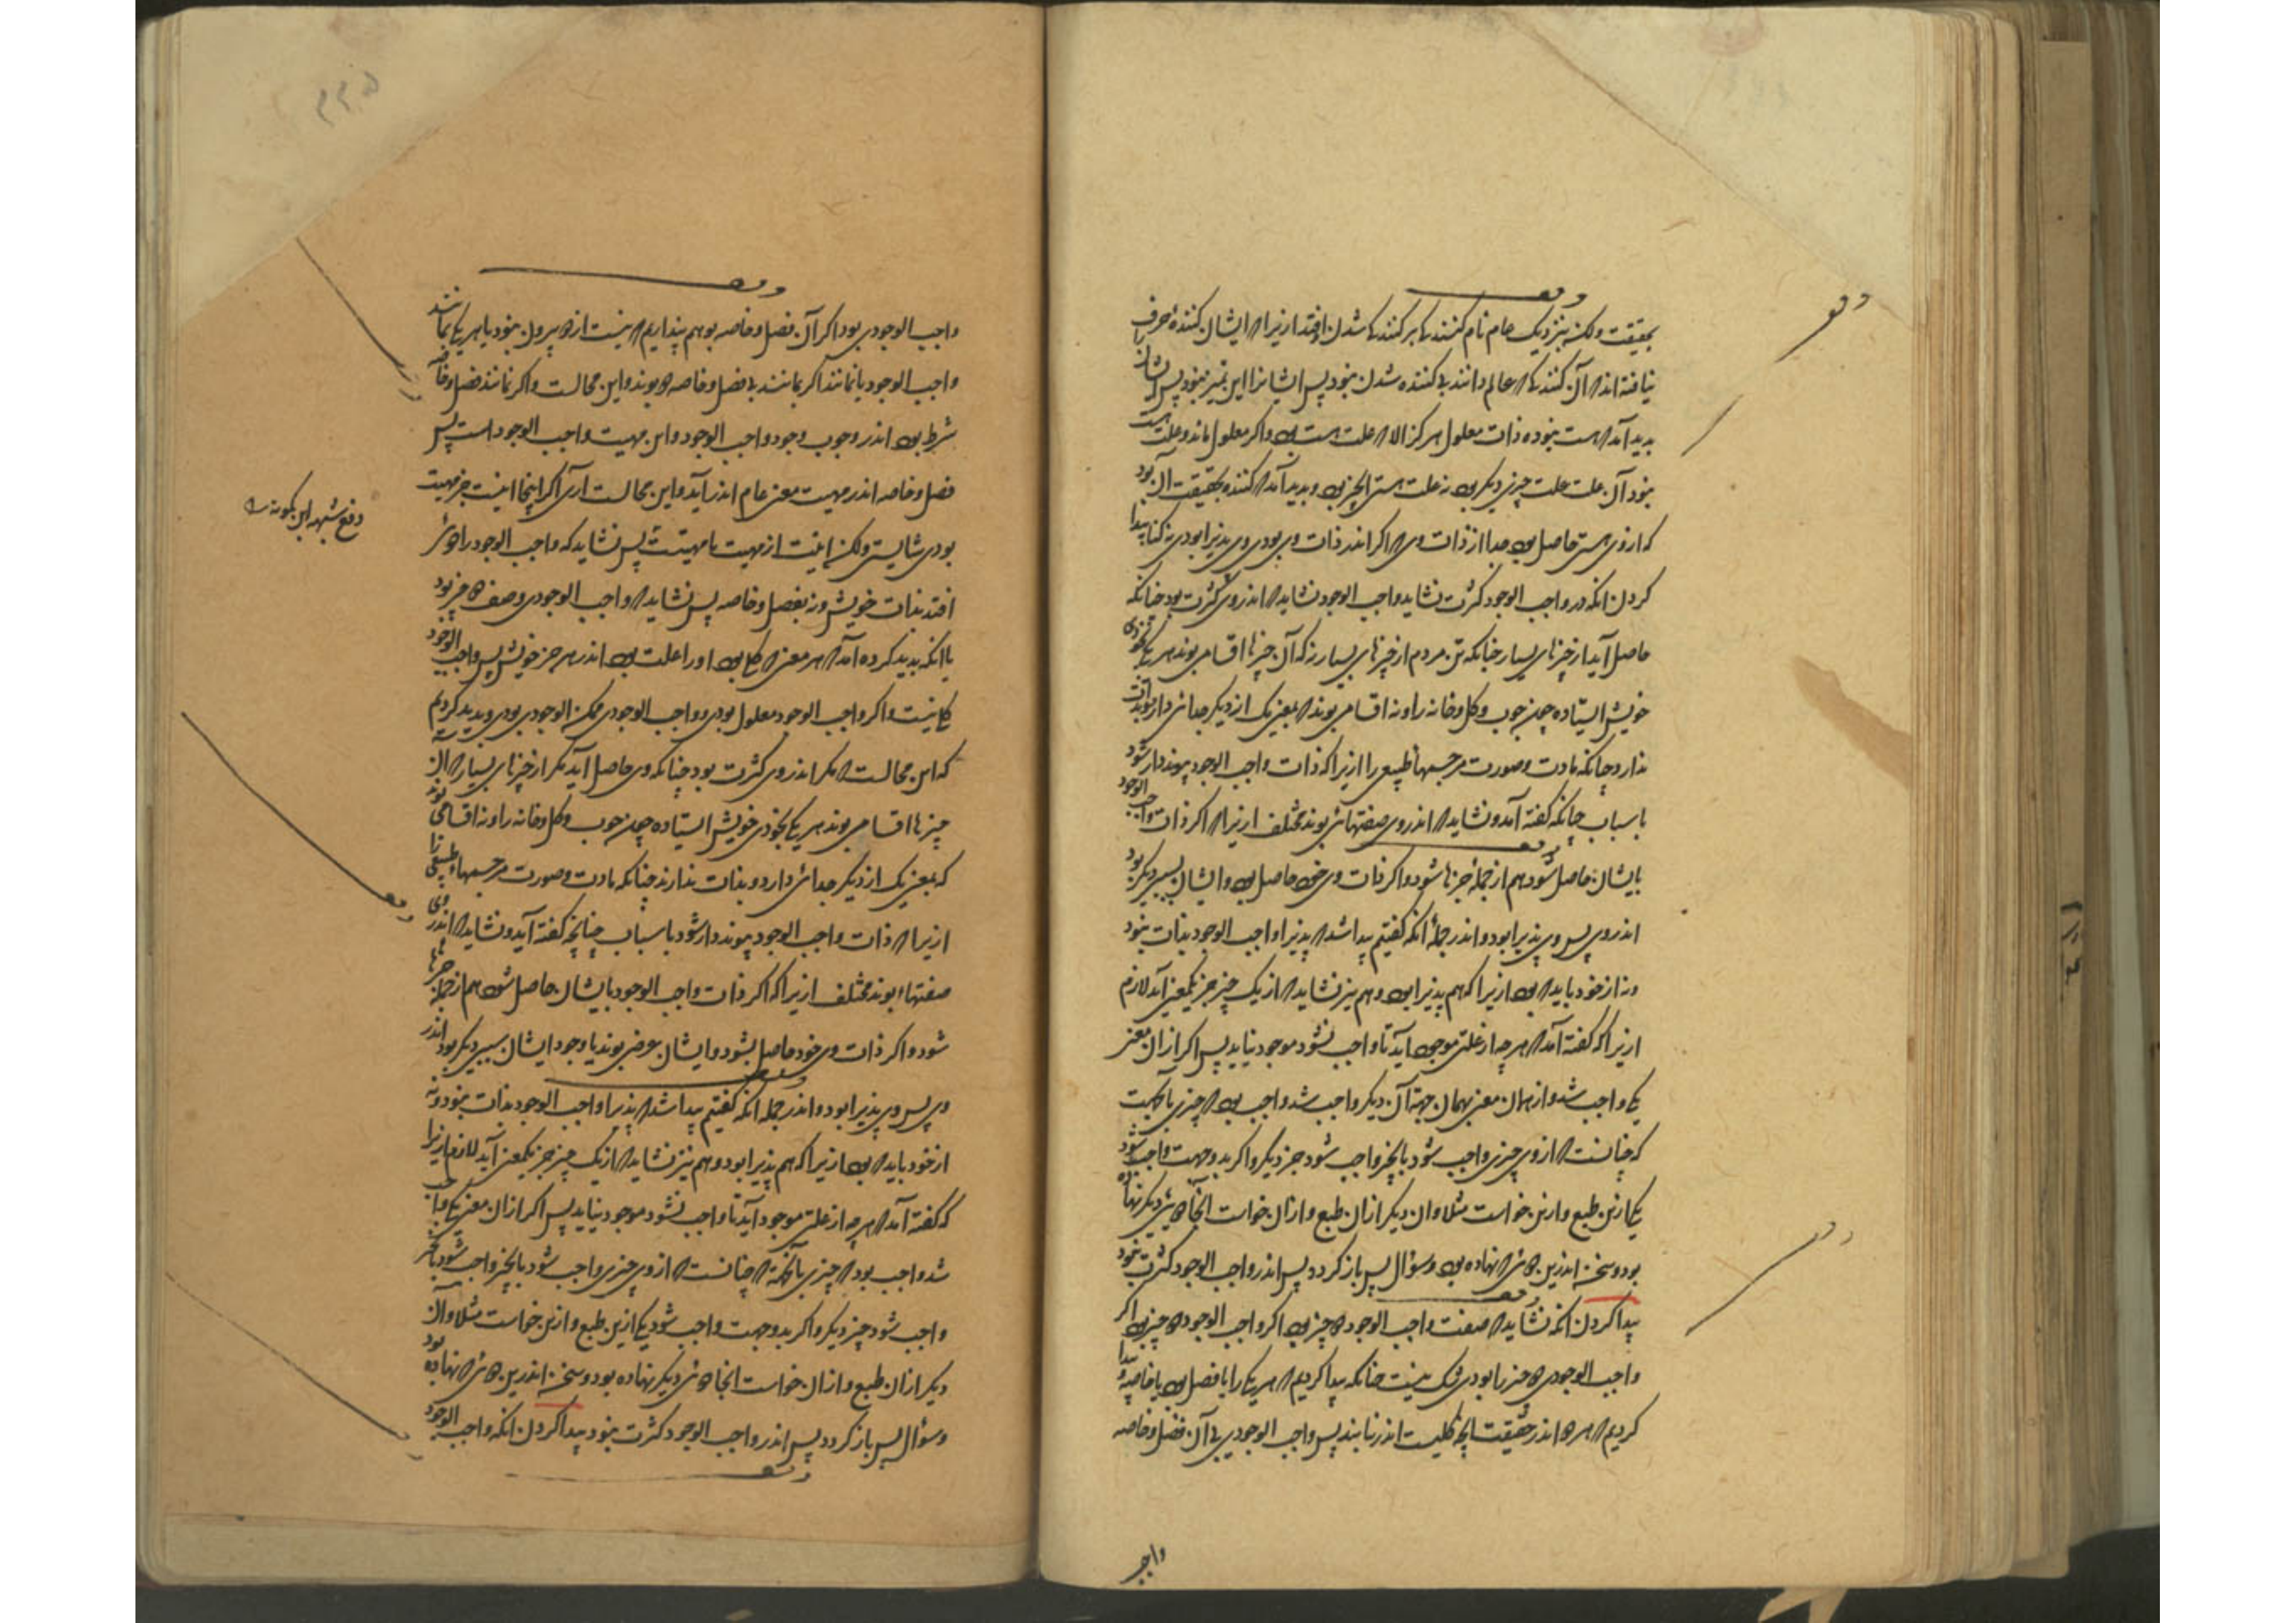 بحقیقت ولکن بنزدیک عام نام کنندها بر کنندها شدن اوفتد ازیرا که ایشان کنندهٔ صرف را
نیافته اند که آن کننده که عالم دانند بی کننده شدن نبود پس ایشانرا این تمیز نبود پس ازینجا
پدید آمد که هست نبود ذات معلول هرگز الا که علت هست بود و اگر معلول ماند و علت نیست
بود آن علت علت چیزی دیگر بود نه علت هستی آنچیز بود و پدید آمد که کننده بحقیقت آن بود
که از وی هستی حاصل بود جدا از ذات وی که اگر اندر ذات وی بودی وی پذیرا بودی نه کنا پیدا
کردن آنکه در واجب الوجود کثرت نشاید واجب الوجود نشاید که اندر وی کثرت بود چنانکه
حاصل آید از چیزهای بسیار چنانکه تن مردم از چیزهای بسیار نه که آن چیزها اقسام بوند هر یکی بخودی
خویش ایستاده چون چوب و گل و خانه را و نه اقسام بوند که بمعنی یک از دیگر جدائی دارند و بذات
ندارد چنانکه مادت و صورت مر جسمهاء طبیعی را ازیرا که ذات واجب الوجود پیونددار شود
باسباب چنانکه گفته آمد و نشاید که اندر وی صفتهائی بوند مختلف ازیرا که اگر ذات واجب الوجود
بایشان حاصل شود هم از جملهٔ جزها شود و اگر ذات وی خود حاصل بود و ایشان بسببی دیگر بود
اندر وی پس وی پذیرا بود و اندر جملهٔ آنکه گفتیم پیدا شد که پذیرا واجب الوجود بذات نبود
و نه از خود باید که بود ازیرا که هم پذیرا بود و هم نیز نشاید که از یک چیز جز یکمعنی آید لازم
ازیرا که گفته آمد که هر چه از علتی موجود آید تا واجب نشود موجود نیاید پس اگر از آن معنی
یکی واجب شد و از همان معنی بهمان جهت آن دیگر واجب شد واجب بود که چیزی بآنجهت
که چنانست که از وی چیزی واجب شود بآنچیز واجب شود جز دیگر و اگر بدو جهت واجب شود
یکی ازین طبع و ازین خواست مثلا و آن دیگر از آن طبع و از آن خواست آنجا دوئی دیگر نهاده
بود و سخن اندرین دوئی نهاده بود و سؤال پس باز گردد پس اندر واجب الوجود کثرت نبود
پیدا کردن آنکه نشاید که صفت واجب الوجود دو چیز بود اگر واجب الوجود دو چیز بود اگر
واجب الوجودی دو چیز را بودی شک نیست چنانکه پیدا کردیم که هر یکی را یا فصل بود یا خاصهٔ پیدا
کردیم که هر دو اندر حقیقت آنچه کلیست اندر نیایند پس واجب الوجودی بی آن فصل و خاصه
واجب
واجب الوجودی بود اگر آن فصل و خاصه بوهم پنداریم که نیست از دو بیرون نبود یا هر یکی بماند
واجب الوجود یا نمانند اگر بمانند بی فصل و خاصه دو بوند و این محالست و اگر نمانند فصل و خاصه
شرط بود اندر وجوب وجود واجب الوجود و این مهیت واجب الوجود است پس
فصل و خاصه اندر مهیت معنی عام اندر آید و این محالست آری اگر اینجا انیت جز مهیت
بودی شایستی ولکن انیت از مهیت یا مهیتست پس نشاید که واجب الوجود را دوئی
افتد بذات خویش و نه بفصل و خاصه پس نشاید که واجب الوجودی وصف دو چیز بود
با آنکه پدید کرده آمد که هر معنی که کلی بود او را علت بود اندر هر جزء خویش پس واجب الوجود
کلی نیست و اگر واجب الوجود معلول بودی و واجب الوجودی ممکن الوجودی بودی و پدید کردیم
که این محالست که مگر اندر وی کثرت بود چنانکه وی حاصل آید مگر از چیزهای بسیار نه از آن
چیزها اقسام بوند هر یکی بخودی خویش ایستاده چون چوب و گل و خانه را و نه اقسامی بوند
که بمعنی یک از دیگر جدائی دارد و بذات ندارند چنانکه مادت و صورت مر جسمهاء طبیعی را
ازیرا که ذات واجب الوجود پیونددار شود باسباب چنانچه گفته آید و نشاید که اندر وی
صفتهاء بوند مختلف ازیرا که اگر ذات واجب الوجود بایشان حاصل شود هم از جمله جزها
شود و اگر ذات وی خود حاصل بشود و ایشان عرض بوند یا وجود ایشان بسببی دیگر بود اندر
وی پس وی پذیرا بود و اندر جمله آنکه گفتیم پیدا شد که پذیرا واجب الوجود بذات نبود و نه
از خود باید که بود ازیرا که هم پذیرا بود و هم نیز نشاید که از یک چیز جز یکمعنی آید لازم ازیرا
که گفته آمد که هر چه از علتی موجود آید تا واجب نشود موجود نیاید پس اگر از آن معنی یکی واجب
شد واجب بود که چیزی بآنجهة که چنانست که از وی چیزی واجب شود بآنچیز واجب شود بآنچیز
واجب شود چیز دیگر و اگر بدو جهت واجب شود یکی ازین طبع و ازین خواست مثلا و آن
دیگر از آن طبع و از آن خواست آنجا دوئی دیگر نهاده بود و سخن اندرین دوئی نهاده بود
و سؤال پس باز گردد پس اندر واجب الوجود کثرت نبود پیدا کردن آنکه واجب الوجود
دفع شبهه ابن کمونه
۲۲۵